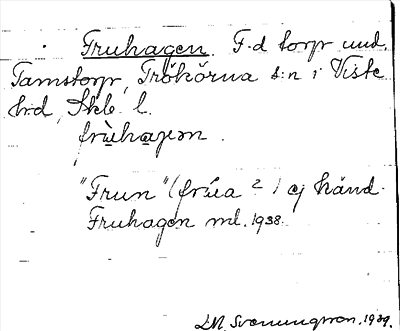 Fruhagen. F.d torp und.
Tamstorp, Trökörna s:n i Viste
h:d, Skb. l.
frùhagən.
"Frun" (frúa 2) ej känd.
Fruhagen ml. 1938.
LM. Svenungsson. 1939.